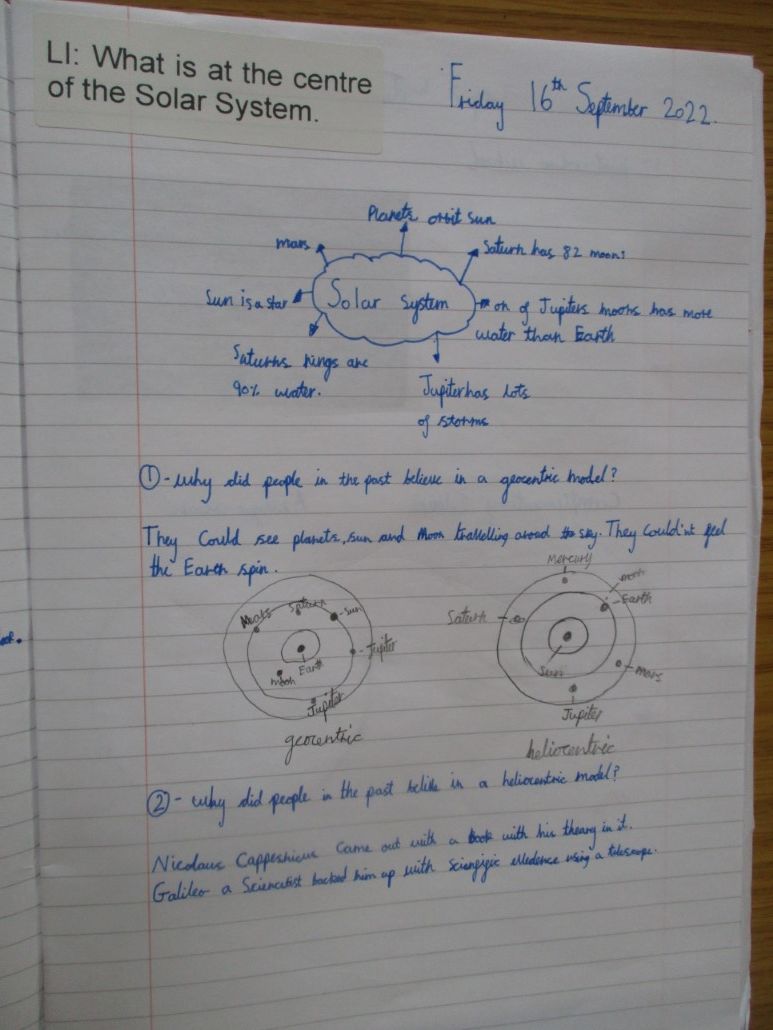 LI: What is at the centre
of the Solar System.
Friday 16th September 2022.
Planets orbit sun
mars
Saturn has 82 moons
Sun is a star
Solar system
on of Jupiters moons has more
water than Earth
Saturns rings are
90% water.
Jupiter has lots
of storms
① - why did people in the past believe in a geocentric model?
They Could see planets, sun and Moon travelling around the sky. They could'nt feel
the Earth spin.
Mars
Saturn
Sun
Jupiter
Earth
moon
Jupiter
geocentric
Mercury
moon
Earth
Saturn
Sun
mars
Jupiter
heliocentric
② - why did people in the past belive in a heliocentric model?
Nicolaus Came out with a book with his theory in it.
Galileo a backed him up with using a telescope.